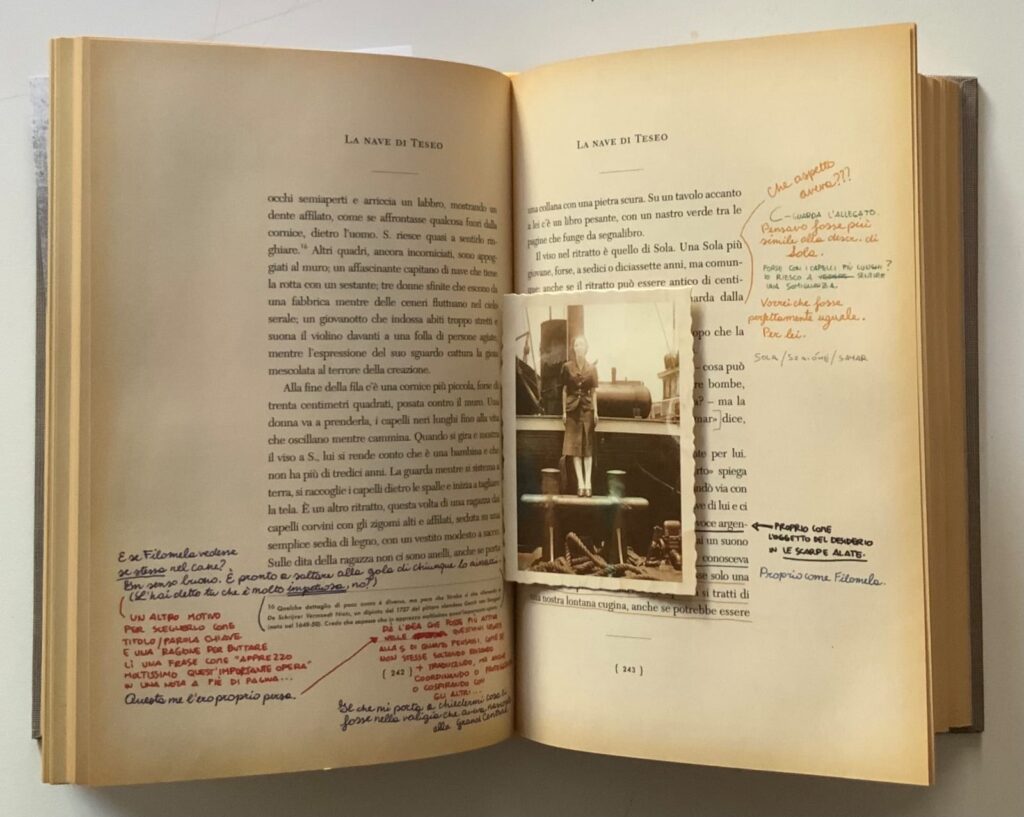 LA NAVE DI TESEO
occhi semiaperti e arriccia un labbro, mostrando un
dente affilato, come se affrontasse qualcosa fuori dalla
cornice, dietro l'uomo. S. riesce quasi a sentirlo rin-
ghiare.16 Altri quadri, ancora incorniciati, sono appog-
giati al muro; un affascinante capitano di nave che tiene
la rotta con un sestante; tre donne sfinite che escono da
una fabbrica mentre delle ceneri fluttuano nel cielo
serale; un giovanotto che indossa abiti troppo stretti e
suona il violino davanti a una folla di persone agiate,
mentre l'espressione del suo sguardo cattura la gioia
mescolata al terrore della creazione.
Alla fine della fila c'è una cornice più piccola, forse di
trenta centimetri quadrati, posata contro il muro. Una
donna va a prenderla, i capelli neri lunghi fino alla vita
che oscillano mentre cammina. Quando si gira e mostra
il viso a S., lui si rende conto che è una bambina e che
non ha più di tredici anni. La guarda mentre si sistema a
terra, si raccoglie i capelli dietro le spalle e inizia a tagliare
la tela. È un altro ritratto, questa volta di una ragazza dai
capelli corvini con gli zigomi alti e affilati, seduta su una
semplice sedia di legno, con un vestito modesto a sacco.
Sulle dita della ragazza non ci sono anelli, anche se porta
E se Filomela vedesse
se stessa nel cane?
In senso buono. È pronto a saltare alla gola di chiunque lo
(L'hai detto tu che è molto impetuosa, no?)
16 Qualche dettaglio di poco conto è diverso, ma pare che Straka si stia riferendo a
De Schrijver Vermoedt Niets, un dipinto del 1737 del pittore olandese
(nato nel 1649-50). Credo che sapesse che io apprezzo moltissimo quest'importante opera.
UN ALTRO MOTIVO
PER SCEGLIERLO COME
TITOLO/PAROLA CHIAVE
E UNA RAGIONE PER BUTTARE
LÌ UNA FRASE COME "APPREZZO
MOLTISSIMO QUEST'IMPORTANTE OPERA"
IN UNA NOTA A PIÈ DI PAGINA...
Questa me l'ero proprio persa.
DÀ L'IDEA CHE FOSSE PIÙ ATTIVA
NELLE QUESTIONI LEGATE
ALLA S DI QUANTO PENSASSI, COME SE
NON STESSE SOLTANTO
+ TRADUCENDO, MA ANCHE
COORDINANDO O PROTEGGENDO
O COSPIRANDO CON
GLI ALTRI...
{ 242 }
Il che mi porta a chiedermi cosa ci
fosse nella valigia che aveva
alla Grand Central.
LA NAVE DI TESEO
una collana con una pietra scura. Su un tavolo accanto
a lei c'è un libro pesante, con un nastro verde tra le
pagine che funge da segnalibro.
Il viso nel ritratto è quello di Sola. Una Sola più
giovane, forse, a sedici o diciassette anni, ma comun-
que; anche se il ritratto può essere antico di centi-
guarda dalla
dopo che la
– cosa può
re bombe,
? – ma la
mar» dice,
te per lui.
rto» spiega
ndò via con
ve di lui e ci
voce argen-
ai un suono
conosceva
se solo una
si tratti di
una nostra lontana cugina, anche se potrebbe essere
{ 243 }
Che aspetto
aveva???
C – GUARDA L'ALLEGATO.
Pensavo fosse più
simile alla descr. di
Sola.
FORSE CON I CAPELLI PIÙ LUNGHI?
IO RIESCO A SENTIRE
UNA SOMIGLIANZA.
Vorrei che fosse
perfettamente uguale.
Per lei.
SOLA/SZALÓMÉ/SAMAR
PROPRIO COME
L'OGGETTO DEL DESIDERIO
IN LE SCARPE ALATE.
Proprio come Filomela.